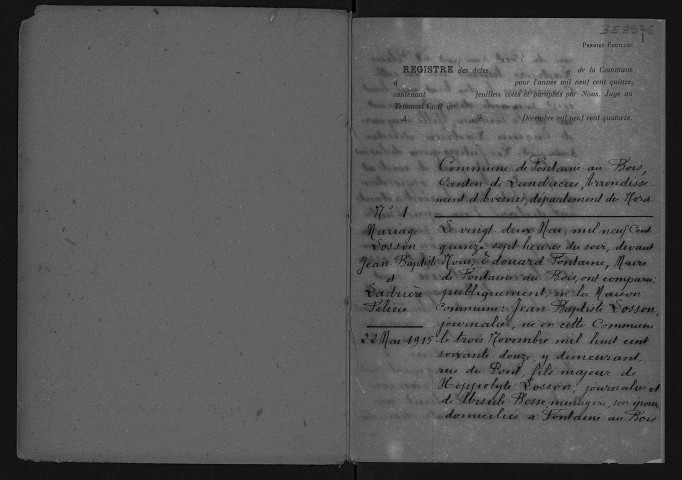 PREMIER FEUILLET
REGISTRE des Actes de la Commune
d pour l'année mil neuf cent quinze,
contenant feuillets cotés et paraphés par Nous, Juge au
Tribunal Civil de
A le Décembre mil neuf cent quatorze.
Commune de Fontaine au Bois,
Canton de Landrecies, Arrondisse
ment d'Avesnes, département du Nord
No 1
Mariage
Losson
Jean Baptiste
et
Ladrière
Félicie
22 Mai 1915
Le vingt deux Mai, mil neuf Cent
quinze sept heures du soir, devant
Nous, Edouard Fontaine, Maire
de Fontaine au Bois, ont comparu
publiquement, en la Maison
Commune: Jean Baptiste Losson,
journalier, né en cette Commune
le trois Novembre mil huit cent
soixante douze, y demeurant,
rue du Pont, fils majeur de
Hippolyte Losson, journalier et
de Ursule Besse, ménagère, son épouse
domiciliés à Fontaine au Bois